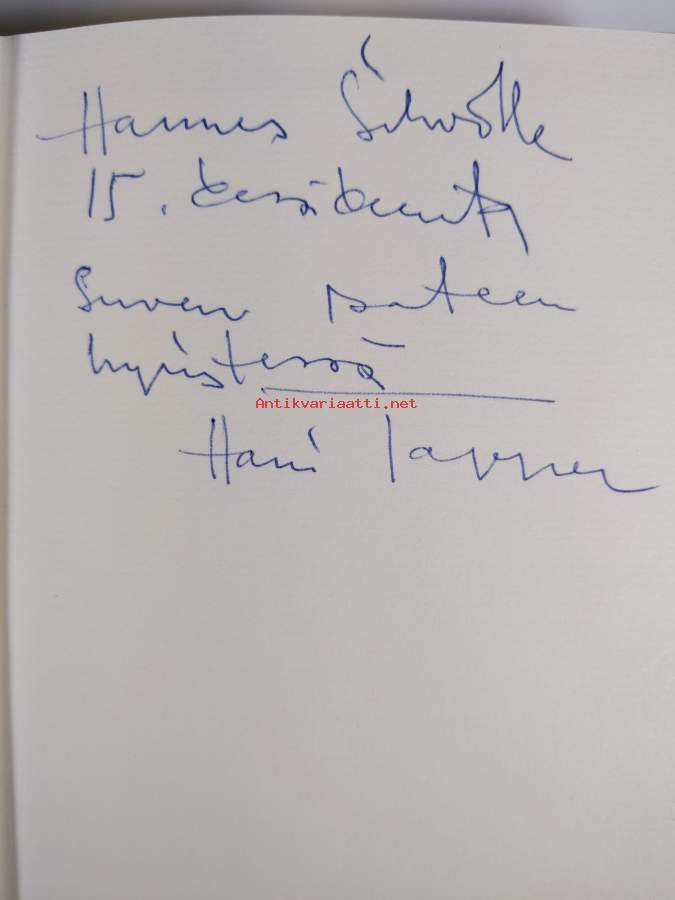 Hannes Sihvolle
15. kesäkuuta
Suven sateen
hyristessä
Antikvariaatti.net
Harri Tapper